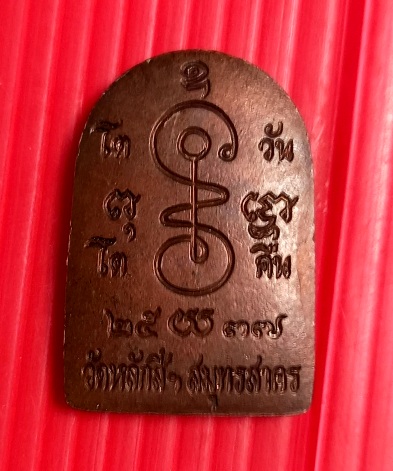 โต วัน
โต คืน
๒๕ ๓๗
วัดหลักสี่ฯ สมุทรสาคร